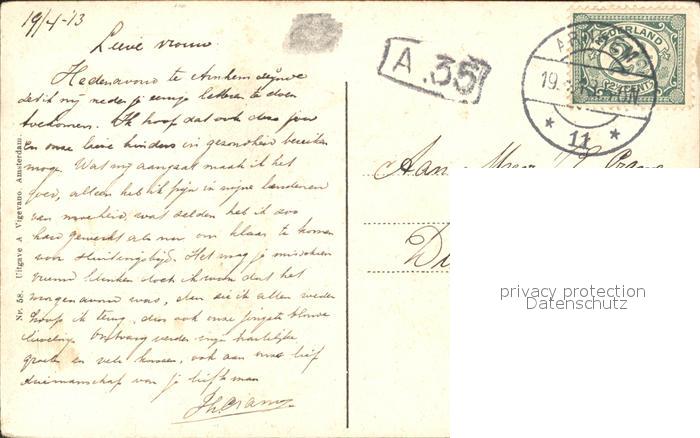 19/4-13
Lieve vrouw
Hedenavond te Arnhem zijnde
deed ik mij neder je eenige letteren te doen
toekomen. Ik hoop dat ook deze jou
en onze lieve kinders in gezondheid bereiken
moge. Wat mij aangaat maak ik het
goed, alleen heb ik pijn in mijne
van moeheid, want zelden heb ik zoo
hard gewerkt als nu om klaar te komen
voor sluitingstijd. Het mag je misschien
vreemd klinken doch ik wou dat het
morgenavond was, dan zie ik allen weder
hoop ik terug, dan ook onze jongste blonde
lieveling. Ontvang verder mijn hartelijke
groeten en vele kussen, ook aan onze lief
van je liefh man
Nr. 58. Uitgave A Vigevano Amsterdam.
A.35
NEDERLAND
2½ CENT
11
Aan
privacy protection
Datenschutz